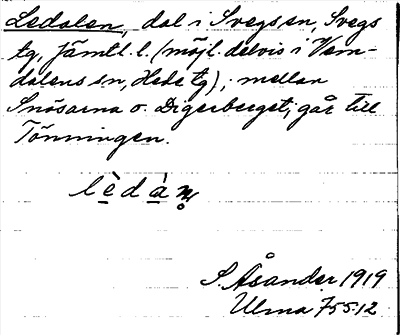 Ledalen, dal i Svegs sn, Svegs
tg, Jämtl. l. (möjl. delvis i Vem-
dalens sn, Hede tg), mellan
Snösarna o. Digerberget; går till
Tönningen.
lèdàn̥
S. Åsander 1919
Ulma 755:12